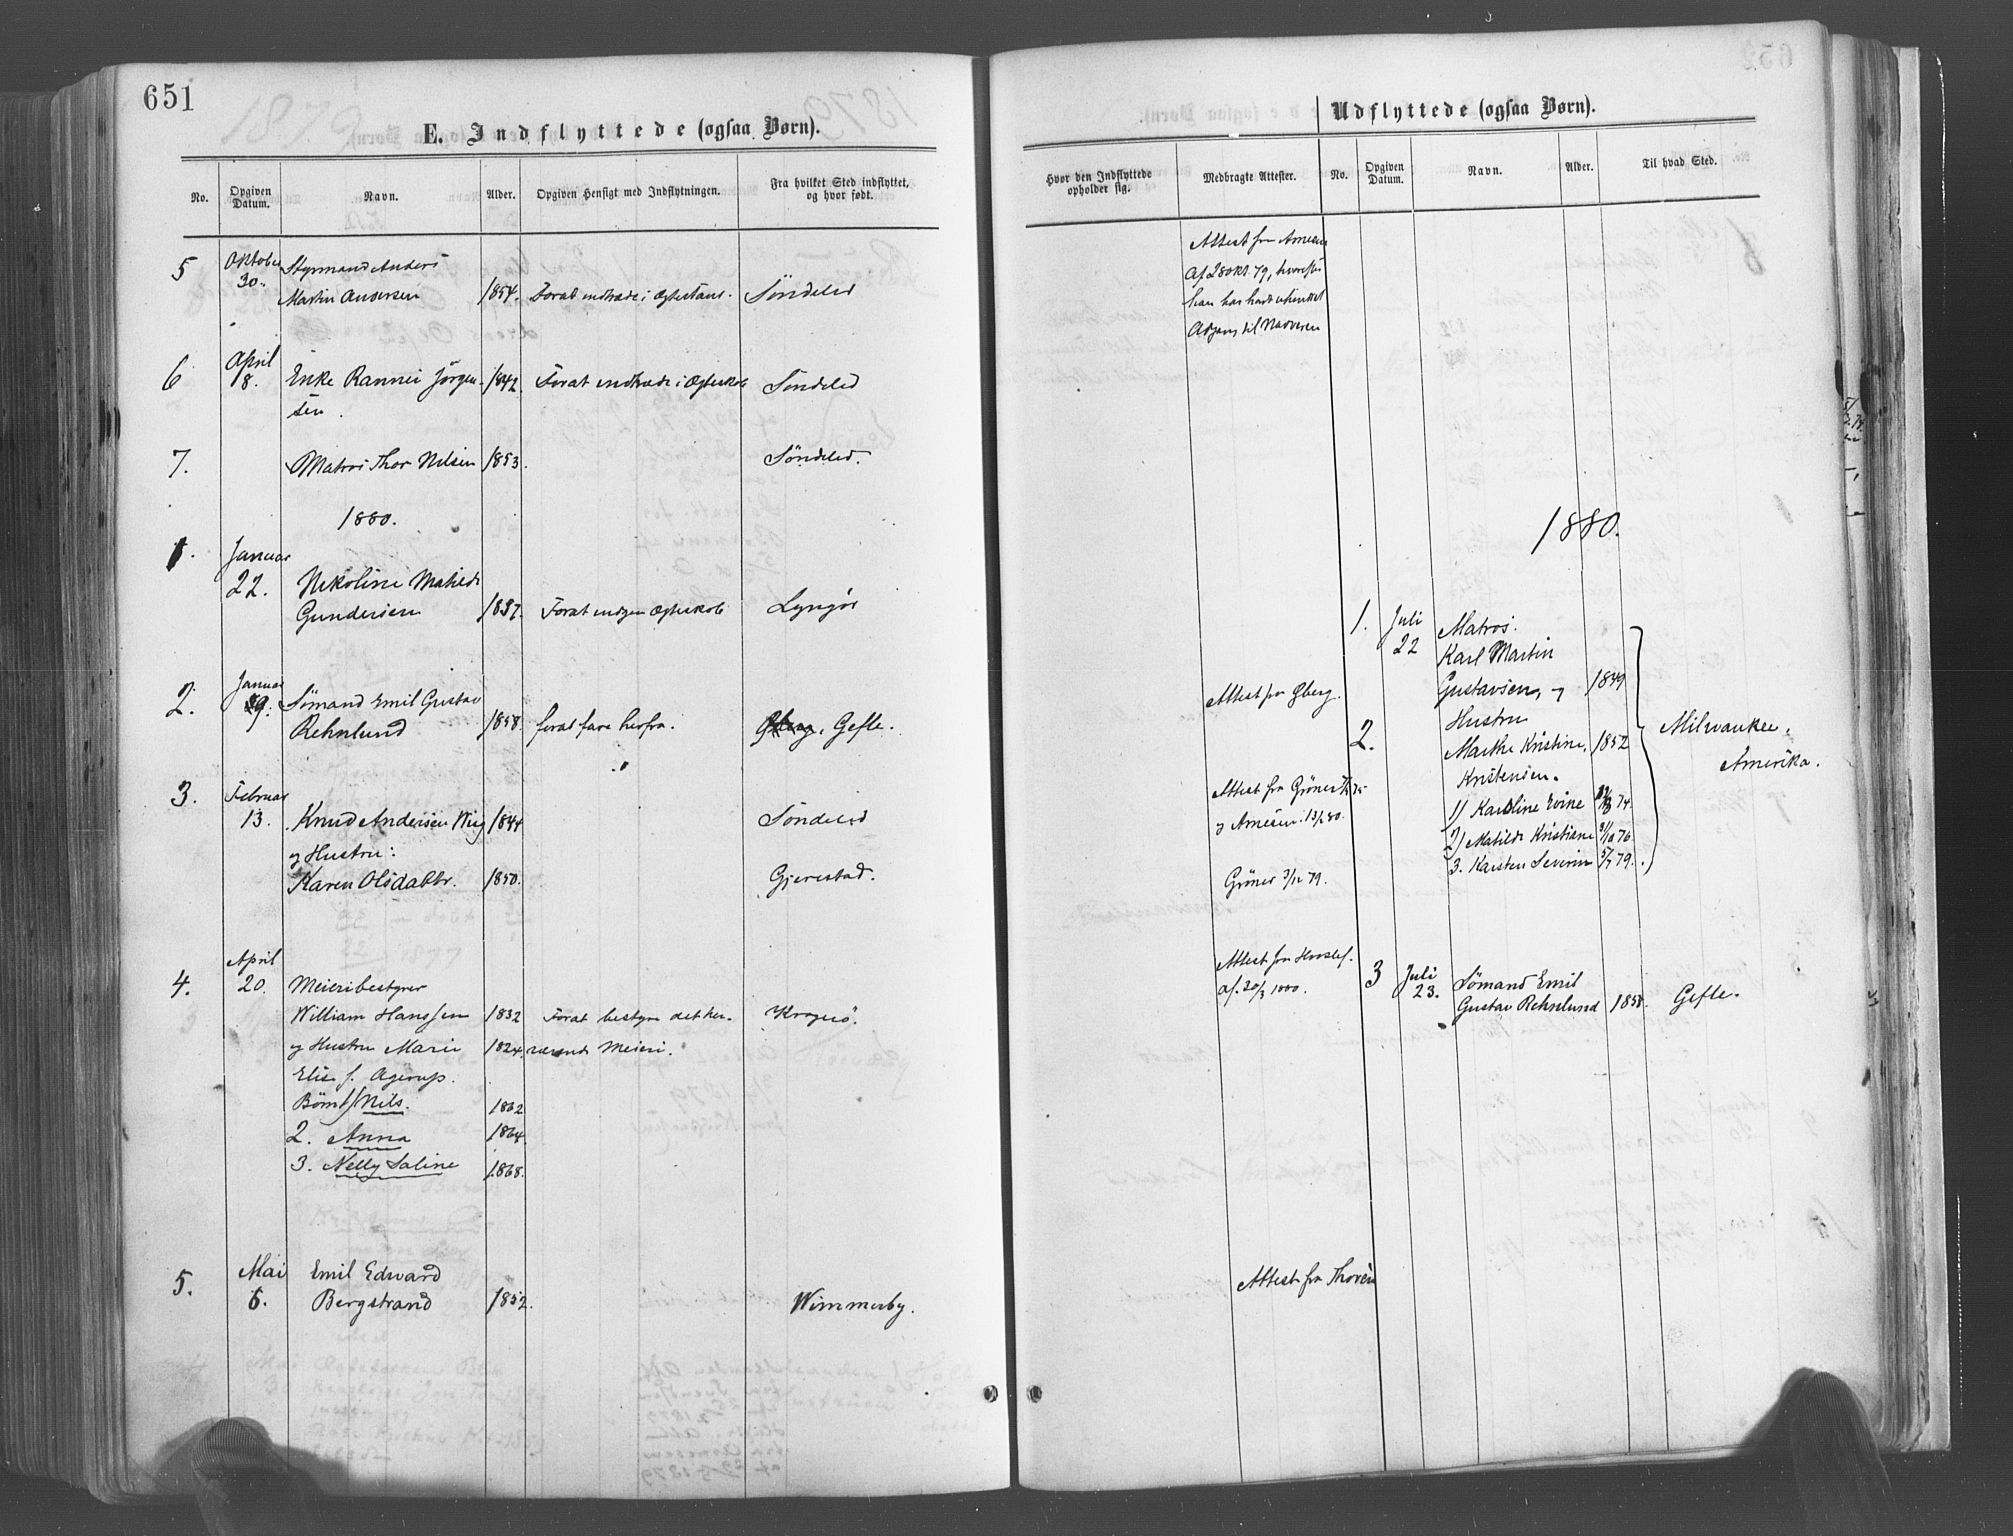 651
E. Indflyttede (ogsaa Børn).
No.
Opgiven Datum.
Navn.
Alder.
Opgiven Hensigt med Indflytningen.
Fra hvilket Sted indflyttet, og hvor født.
5
Oktober
30.
Styrmand Anders
Martin Andersen
1854.
Forat indtræde i Ægtestand.
Söndeled
6
April
8.
Enke Rannei Jörgen-
sen.
1842
Forat indtræde i Ægteskab
Söndeled
7.
Matros Thor Nilsen
1853.
Söndeled.
1880.
1.
Januar
22.
Nikoline Matilde
Gundersen
1837.
Forat indgaa Ægteskab
Lyngör
2.
Januar
29.
Sömand Emil Gustav
Rehnlund
1858.
forat fare herfra.
Gefle.
3.
Februar
13.
Knud Andersen Wiig
1844
og Hustru:
Karen Olsdattr.
1850.
Söndeled
Gjerestad.
4.
April
20.
Meieribestyrer
William Hanssen
1832
Forat bestyre det her-
Kragerö.
og Hustru Marie
1824.
værende Meieri.
Elise f. Agerup.
Börn 1/ Nils.
1862
2. Anna
1864.
3. Nelly Saline
1868.
5.
Mai
6.
Emil Edward
Bergstrand
1852.
Wimmerby.
Udflyttede (ogsaa Børn).
Hvor den Indflyttede opholder sig.
Medbragte Attester.
No.
Opgiven Datum.
Navn.
Alder.
Til hvad Sted.
Attest fra Arnesen
af 28 Okt. 79, hvorefter
han har havt uhindret
Adgang til Nadveren
1880.
1.
Juli
22
Matros.
Karl Martin
Gustavsen, og
1849
Attest fra Öberg.
2.
Hustru
Marthe Kristine,
1852
Kristensen.
Milwaukee,
Amerika.
Attest fra Gröner
og Arnesen: 13/2 80.
1) Karoline Evine
74.
2) Matilde Kristiane
76
3. Karsten Severin
5/7 79.
Gröner 3/12 79.
Attest fra
af. 20/3 1880.
3
Juli
23.
Sömand Emil
Gustav Rehnlund
1858.
Gefle.
Attest fra Thorén